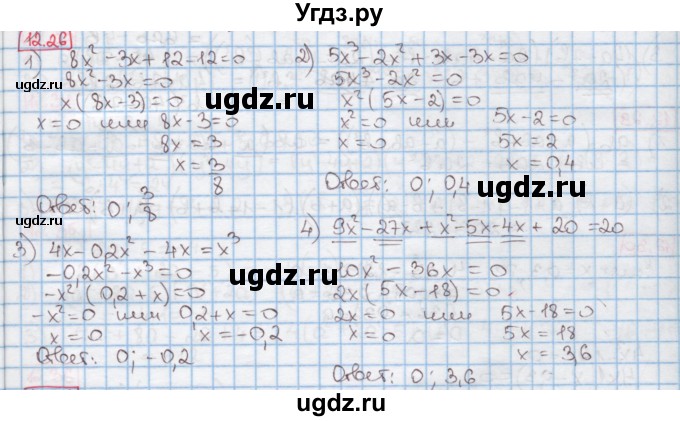 Угдз.ру
12.26
1) 8x² - 3x + 12 - 12 = 0
8x² - 3x = 0
x(8x - 3) = 0
x = 0 или 8x - 3 = 0
8x = 3
x = 3/8
Ответ: 0; 3/8
2) 5x³ - 2x² + 3x - 3x = 0
5x³ - 2x² = 0
x²(5x - 2) = 0
x² = 0 или 5x - 2 = 0
x = 0 5x = 2
x = 0,4
Ответ: 0; 0,4
3) 4x - 0,2x² - 4x = x³
-0,2x² - x³ = 0
-x²(0,2 + x) = 0
-x² = 0 или 0,2 + x = 0
x = 0 x = -0,2
Ответ: 0; -0,2
4) 9x² - 27x + x² - 5x - 4x + 20 = 20
10x² - 36x = 0
2x(5x - 18) = 0
2x = 0 или 5x - 18 = 0
x = 0 5x = 18
x = 3,6
Ответ: 0; 3,6
ugdz.ru
ugdz.ru
ugdz.ru
ugdz.ru
ugdz.ru
ugdz.ru
ugdz.ru
ugdz.ru
ugdz.ru
ugdz.ru
ugdz.ru